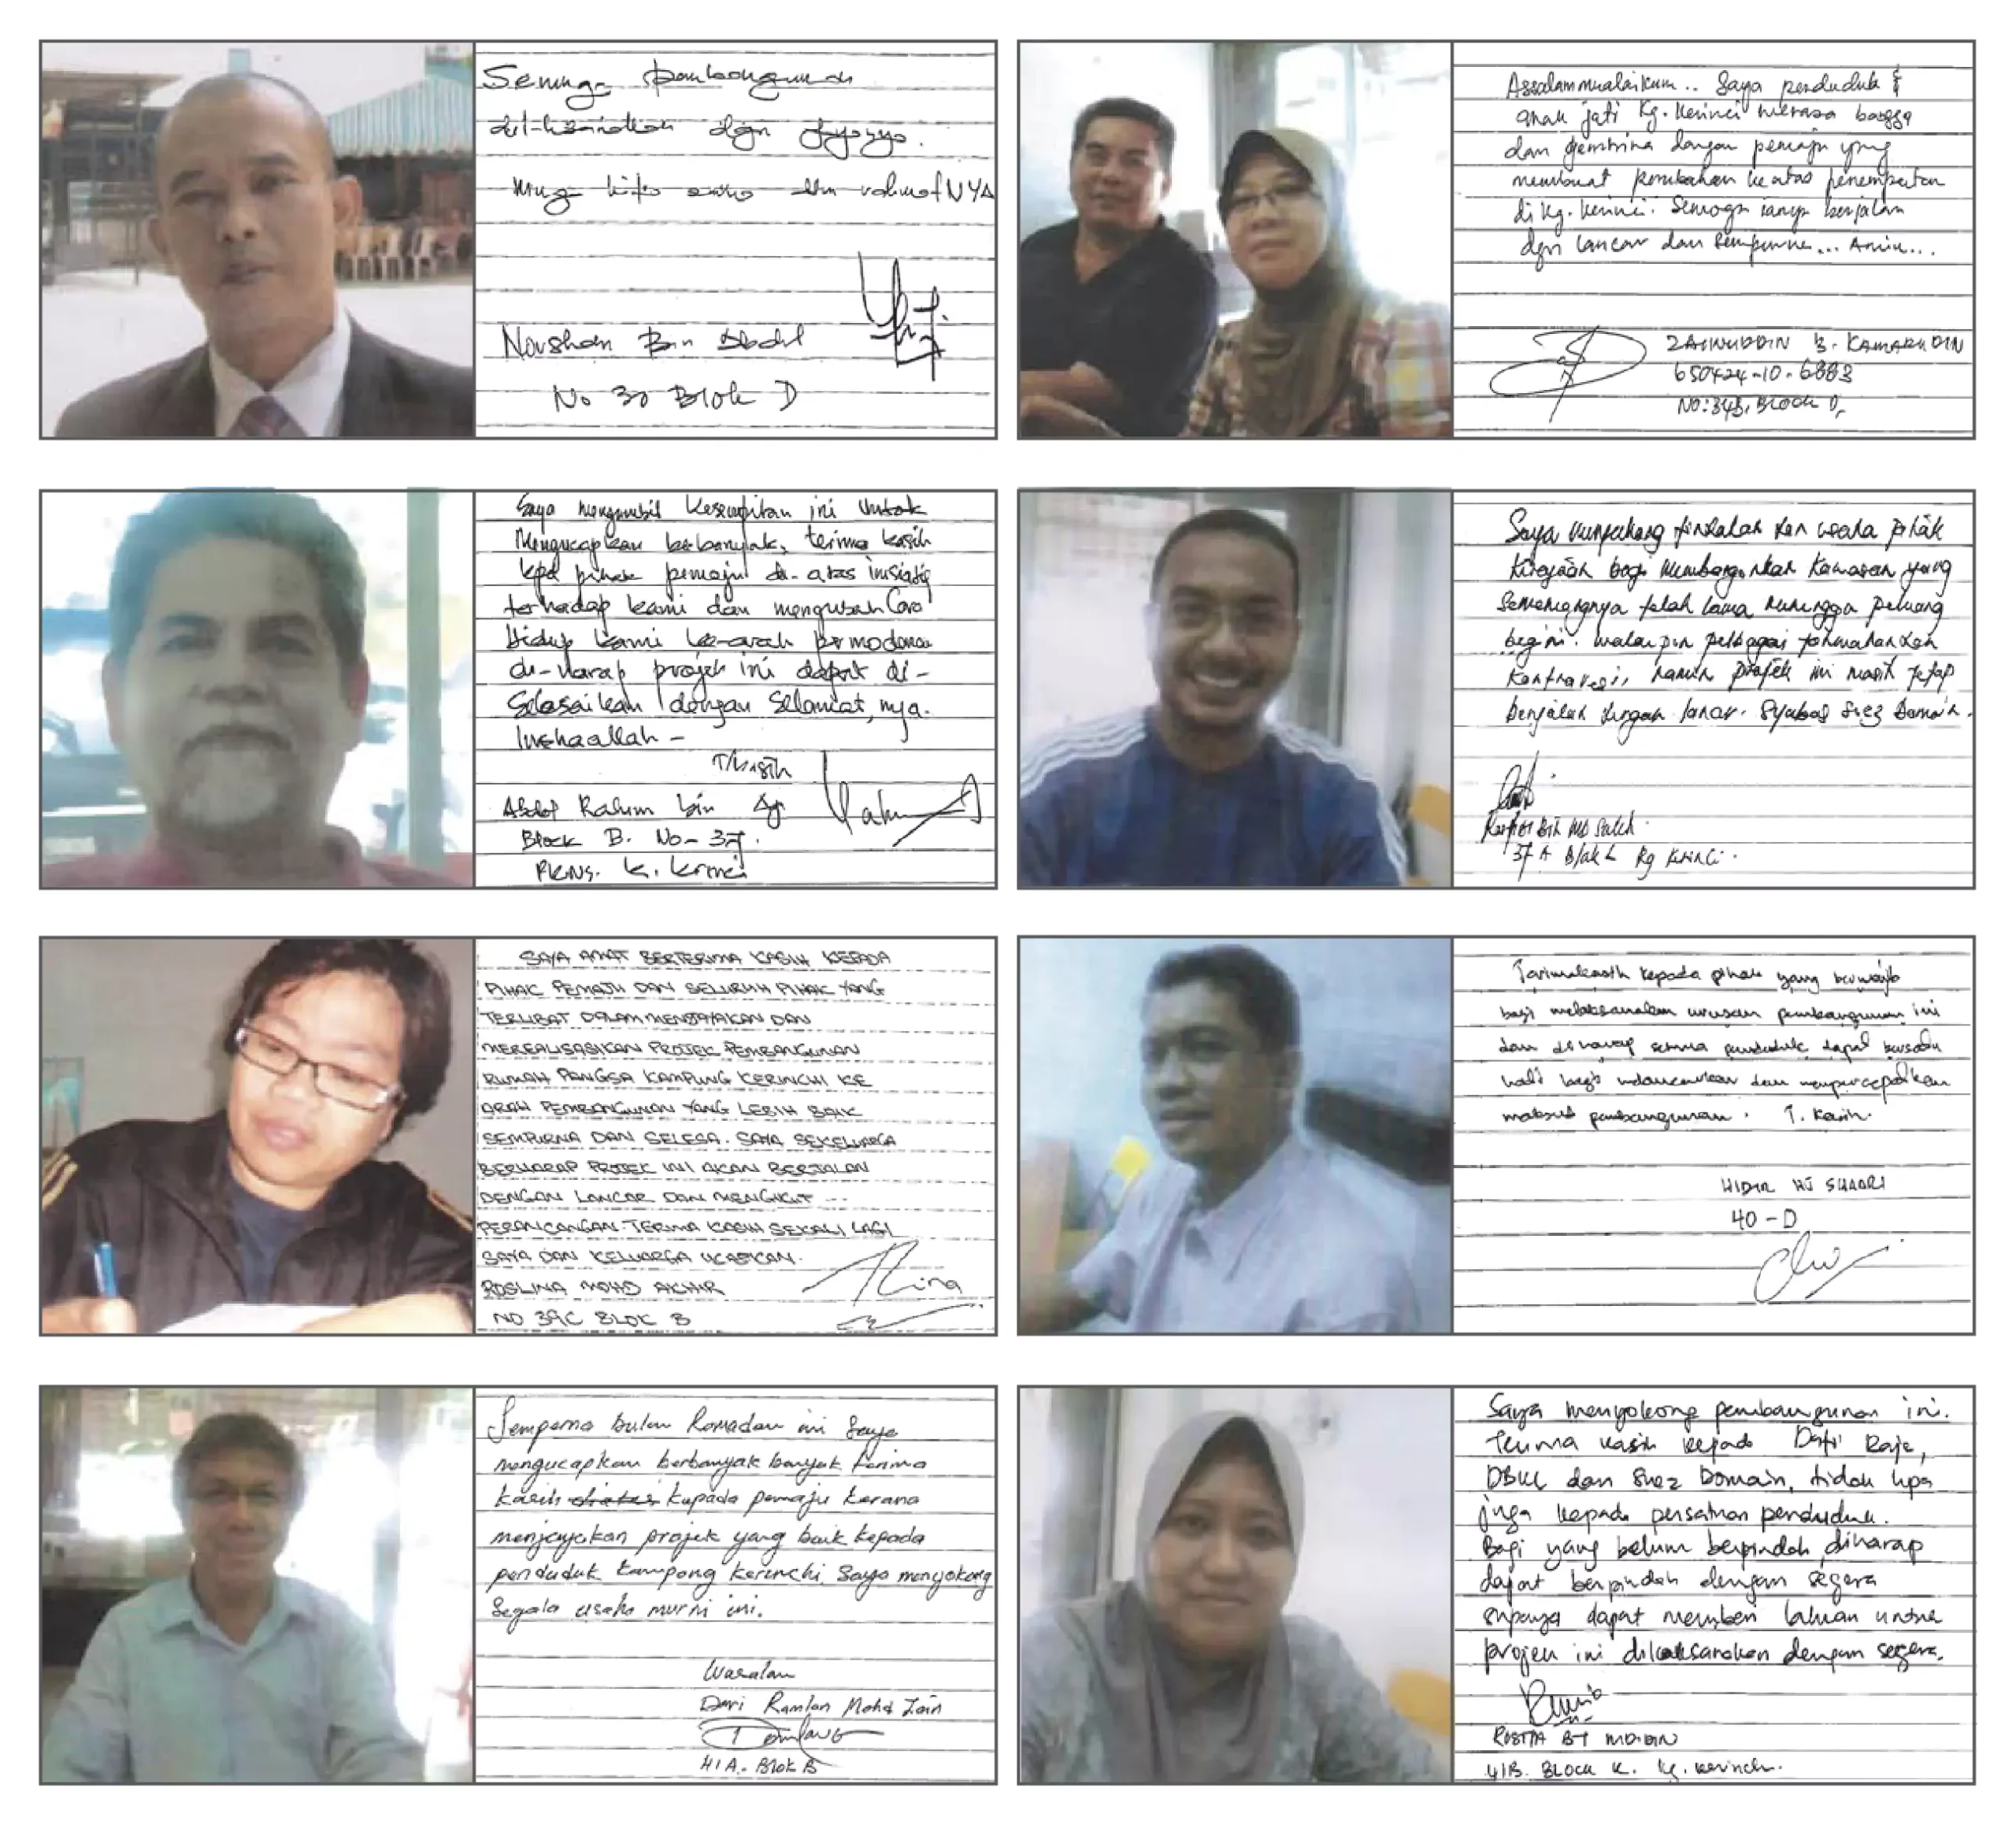 Semoga pembangunan
dgn
NYA
Norshan Bin Abdul
No 30 Blok D
Assalammualaikum.. Saya penduduk &
anak jati Kg. Kerinci merasa bangga
dan gembira dengan pemaju yang
membuat perubahan ke atas penempatan
di Kg. Kerinci. Semoga ianya berjalan
dgn lancar dan sempurna... Amin...
ZAINUDDIN B. KAMARUDIN
650424-10-6883
NO: 343, BLOCK D,
Saya mengambil kesempatan ini untuk
mengucapkan berbanyak, terima kasih
kpd pihak pemaju di-atas insiatif
terhadap kami dan mengubah Cara
hidup kami ke-arah permodenan
di-harap projek ini dapat di-
Selesaikan dengan Selamat, nya.
Inshaallah -
T/Kasih
Abdol Rahim bin
Block B. No- 37.
PKNS. K. Krinci
Saya menyokong tindakan dan usaha pihak
kerajaan bagi membangunkan kawasan yang
sememangnya telah lama menunggu peluang
begini. walaupun pelbagai tohmahan dan
kontravesi, namun projek ini masih tetap
berjalan dengan lancar. Syabas Suez Domain.
Bin Md Saleh.
37 A Blok L Kg Kirinci.
SAYA AMAT BERTERIMA KASIH KEPADA
PIHAK PEMAJU DAN SELURUH PIHAK YANG
TERLIBAT DALAM MENJAYAKAN DAN
MEREALISASIKAN PROJEK PEMBANGUNAN
RUMAH PANGSA KAMPUNG KERINCHI KE
ARAH PEMBANGUNAN YANG LEBIH BAIK
SEMPURNA DAN SELESA. SAYA SEKELUARGA
BERHARAP PROJEK INI AKAN BERJALAN
DENGAN LANCAR DAN MENGIKUT ...
PERANCANGAN. TERIMA KASIH SEKALI LAGI
SAYA DAN KELUARGA UCAPKAN.
ROSLINA MOHD AKHIR
NO 39C BLOK B
Tarimakasih kepada pihak yang berwajib
bagi melaksanakan urusan pembangunan ini
dan diharap semua penduduk dapat bersatu
hati bagi melancarkan dan mempercepatkan
maksud pembangunan. T. Kasih.
HIDIR HJ SHAARI
40 - D
Sempena bulan Ramadan ini Saya
mengucapkan berbanyak banyak terima
kasih kepada pemaju kerana
menjayakan projek yang baik kepada
penduduk Kampong Kerinchi. Saya menyokong
Segala usaha murni ini.
Wasalam
Dari Ramlan Mohd Zain
41A. Blok B
Saya menyokong pembangunan ini.
Terima kasih kepada Dato Raja,
DBKL dan Suez Domain, tidak lupa
juga kepada persatuan penduduk.
Bagi yang belum berpindah, diharap
dapat berpindah dengan segera
supaya dapat memberi laluan untuk
projek ini dilaksanakan dengan segera.
ROSITA BT MD DIN
41B. BLOCK K. Kg. Kerinchi.